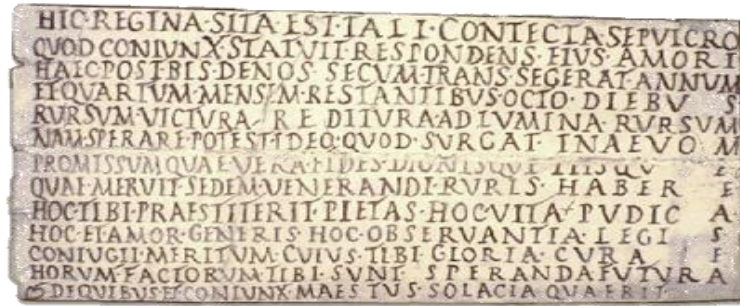 HIC·REGINA·SITA·EST·TALI·CONTECTA·SEPVLCRO
QUOD·CONIUNX·STATVIT·RESPONDENS·EIVS·AMORI
HAEC·POST·BIS·DENOS·SECVM·TRANSSEGERAT·ANNUM
ET·QVARTUM·MENSEM·RESTANTIBUS·OCTO·DIEBUS
RURSUM·VICTURA·REDITURA·AD·LUMINA·RURSUM
NAM·SPERARE·POTEST·IDEO·QUOD·SURGAT·IN·AEVOM
PROMISSUM·QUAE·VERA·FIDES·DIGNISQUE·PIISQUE
QUAE·MERVIT·SEDEM·VENERANDI·RVRIS·HABERE
HOC·TIBI·PRAESTITERIT·PIETAS·HOC·VITA·PVDICA
HOC·ET·AMOR·GENERIS·HOC·OBSERVANTIA·LEGIS
CONIUGII·MERITUM·CVIUS·TIBI·GLORIA·CVRAE
HORUM·FACTORUM·TIBI·SUNT·SPERANDA·FUTURA
DE·QUIBUS·ET·CONIUNX·MAESTUS·SOLACIA·QUAERIT